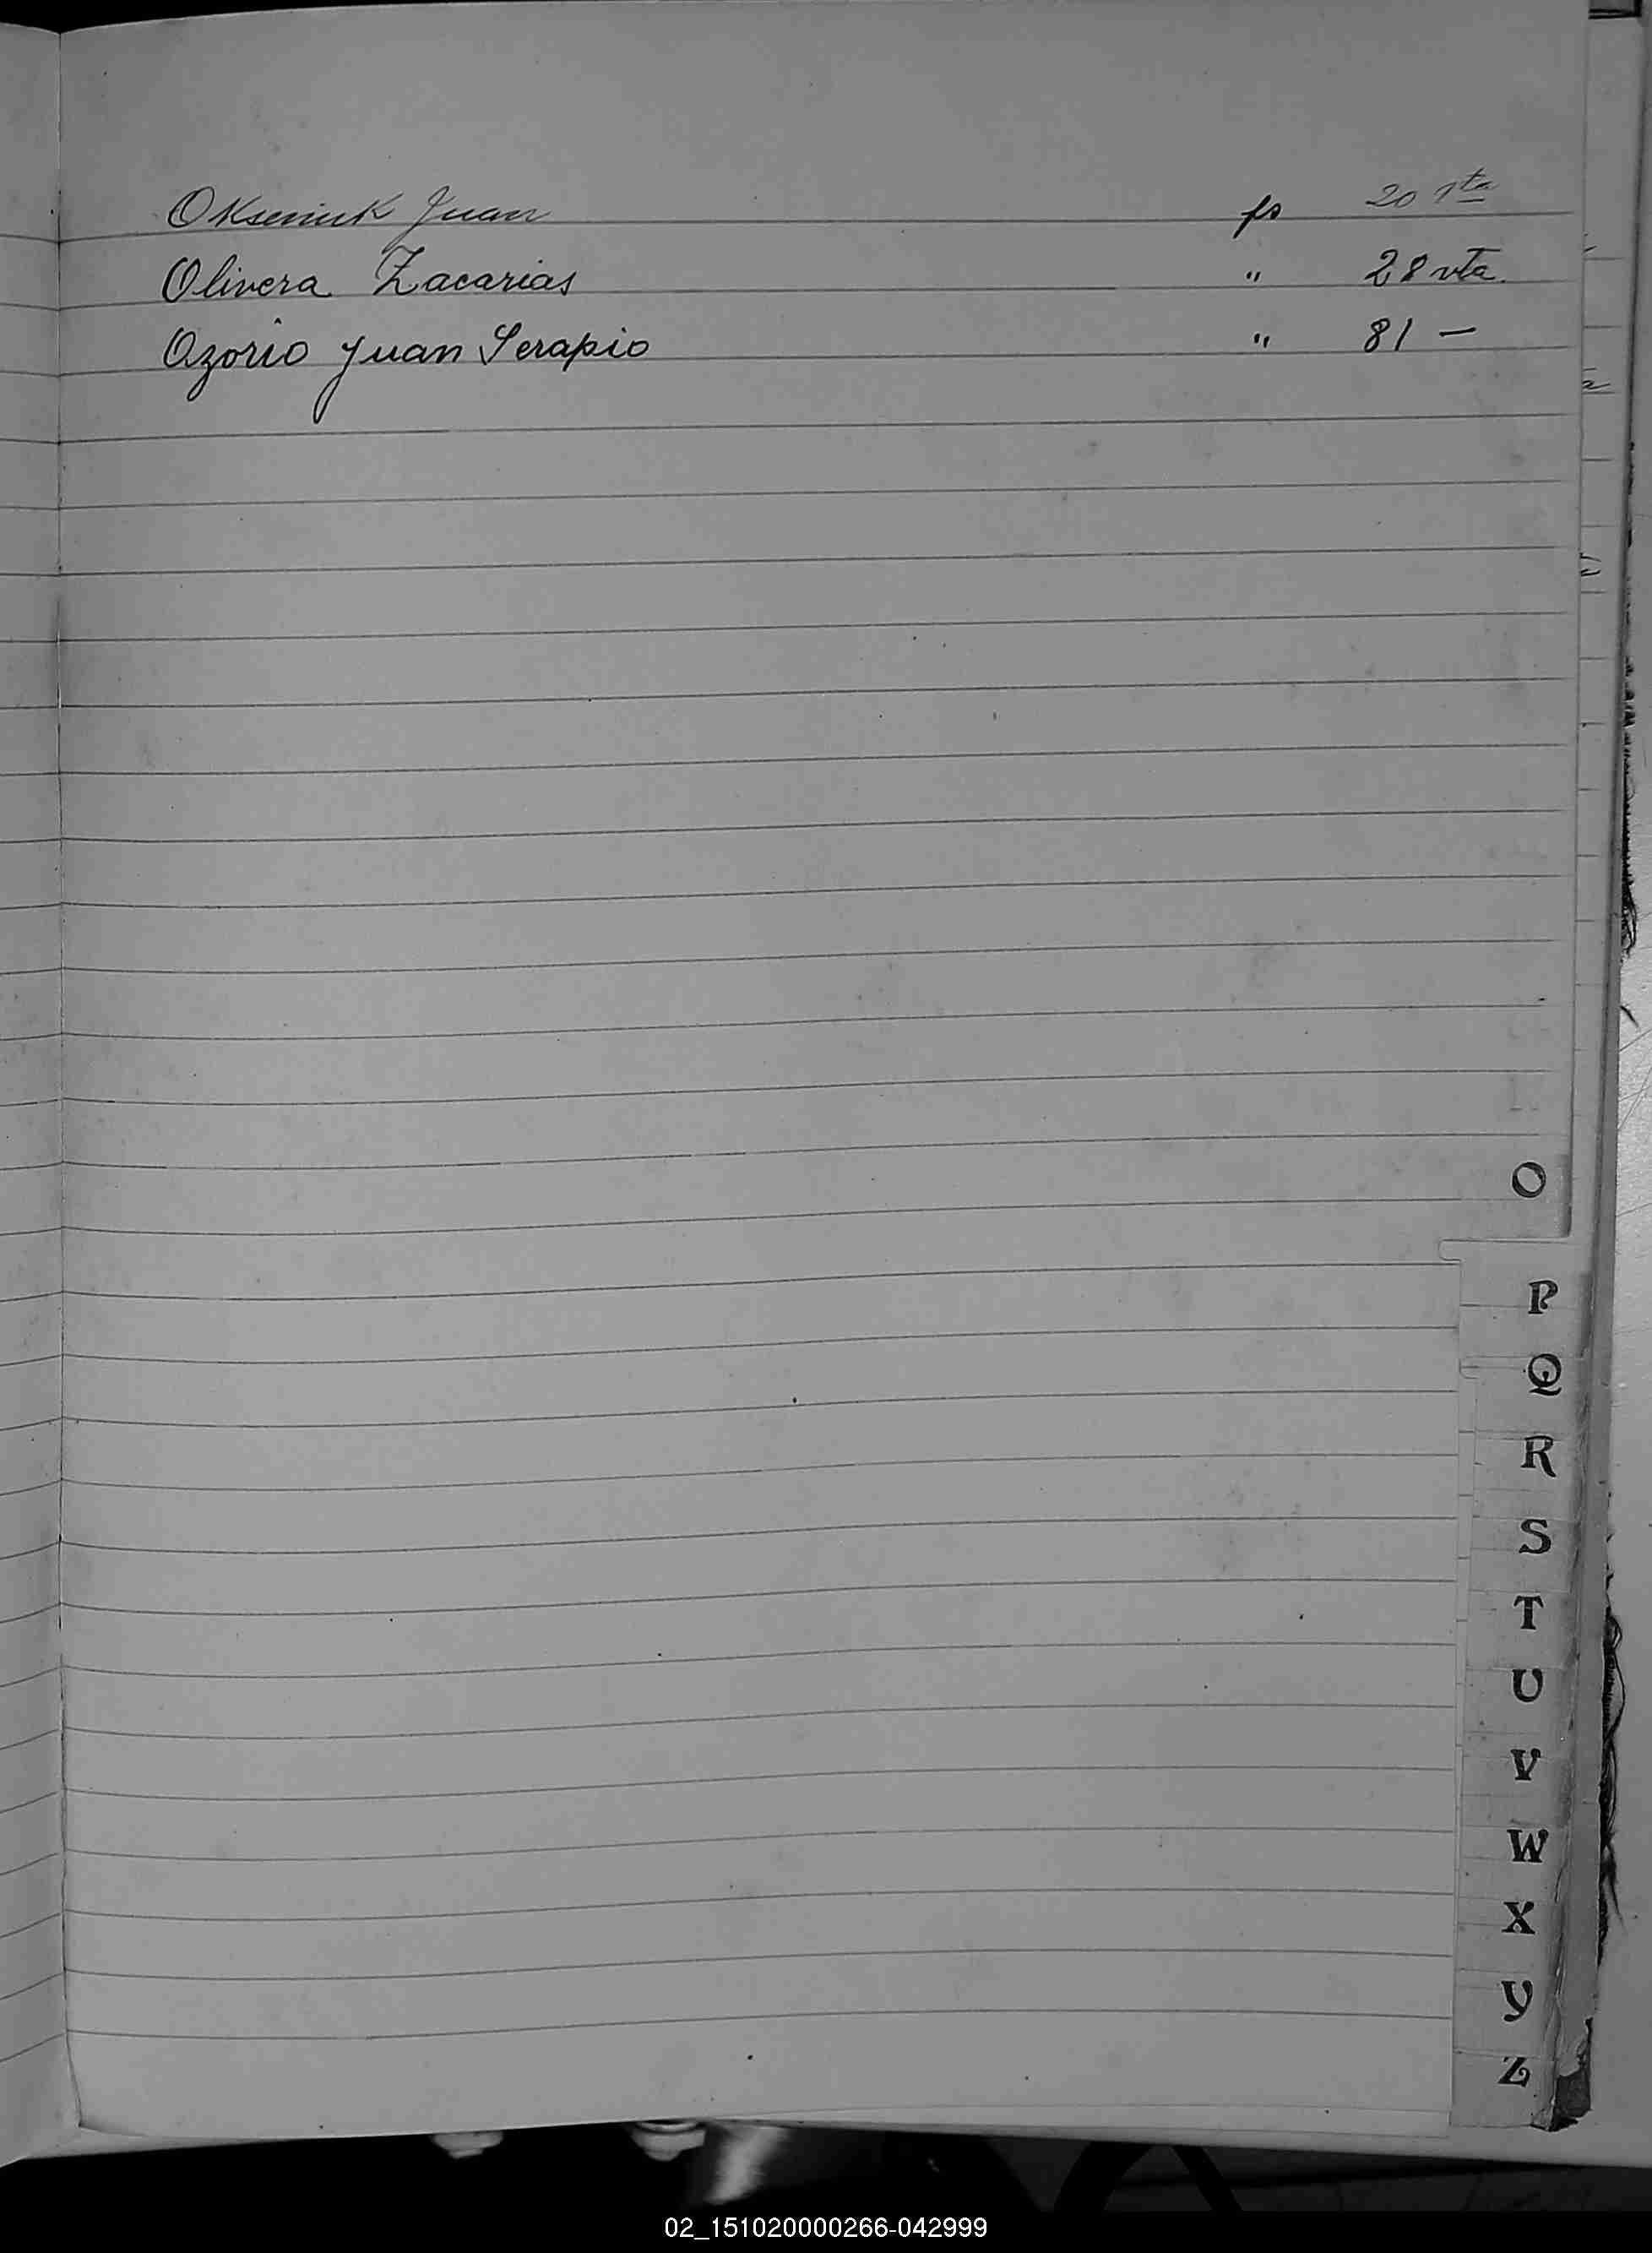 Okseniuk Juan fs 20 vta
Olivera Zacarias " 28 vta.
Ozorio Juan Serapio " 81 —
O
P
Q
R
S
T
U
V
W
X
Y
Z
02_151020000266-042999